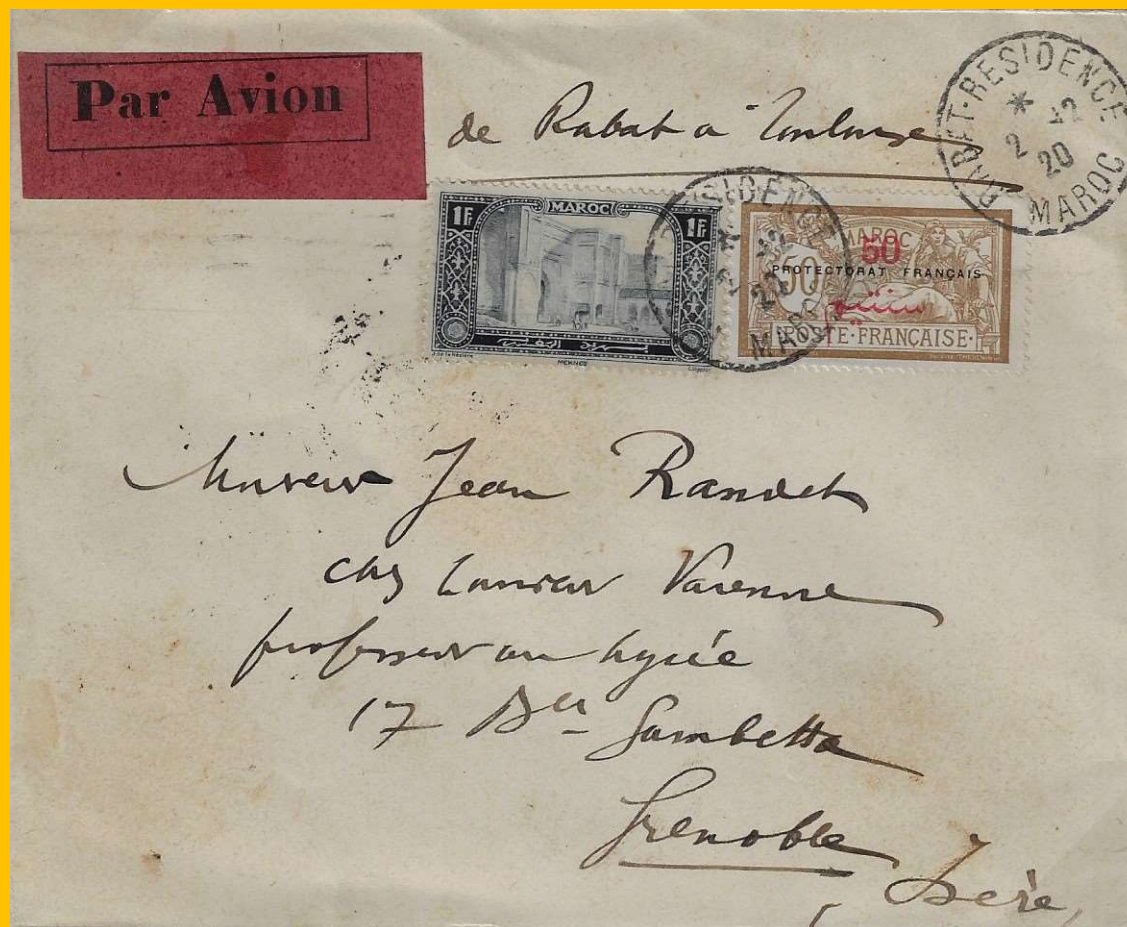 Par Avion
de Rabat à Toulouse
RABAT-RESIDENCE
* 2 -12
20
MAROC
1F MAROC 1F
MEKNES
MAROC
50 50
PROTECTORAT FRANÇAIS
POSTE FRANÇAISE
Monsieur Jean Randet
chez Monsieur Varenne
professeur au Lycée
17 Bd Gambetta
Grenoble
Isère